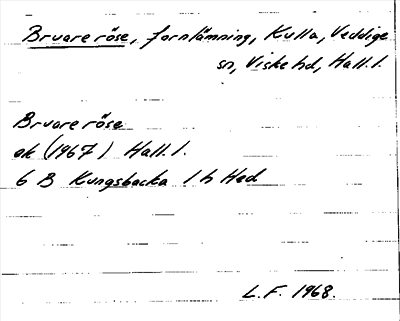 Bruare röse, fornlämning, Kulla, Veddige
sn, Viske hd, Hall.l.
Bruare röse
ek (1967) Hall.l.
6 B Kungsbacka 1 h Hed
L.F. 1968.